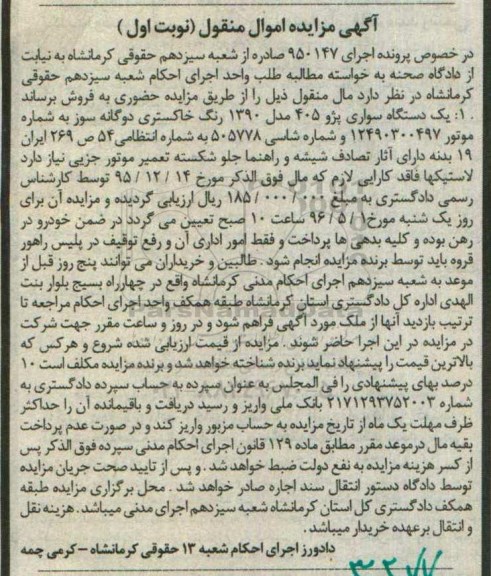 آگهی مزایده اموال منقول (نوبت اول)
در خصوص پرونده اجرای ۹۵۰۱۴۷ صادره از شعبه سیزدهم حقوقی کرمانشاه به نیابت
از دادگاه صحنه به خواسته مطالبه طلب واحد اجرای احکام شعبه سیزدهم حقوقی
کرمانشاه در نظر دارد مال منقول ذیل را از طریق مزایده حضوری به فروش برساند
. ۱: یک دستگاه سواری پژو ۴۰۵ مدل ۱۳۹۰ رنگ خاکستری دوگانه سوز به شماره
موتور ۱۲۴۹۰۳۰۰۴۹۷ و شماره شاسی ۵۰۵۷۷۸ به شماره انتظامی ۵۴ ص ۲۶۹ ایران
۱۹ بدنه دارای آثار تصادف شیشه و راهنما جلو شکسته تعمیر موتور جزیی نیاز دارد
لاستیکها فاقد کارایی لازم که مال فوق الذکر مورخ ۱۴ / ۱۲ / ۹۵ توسط کارشناس
رسمی دادگستری به مبلغ ۰۰۰ / ۰۰۰ / ۱۸۵ ریال ارزیابی گردیده و مزایده آن برای
روز یک شنبه مورخ ۱ / ۵ / ۹۶ ساعت ۱۰ صبح تعیین می گردد در ضمن خودرو در
رهن بوده و کلیه بدهی ها پرداخت و فقط امور اداری آن و رفع توقیف در پلیس راهور
قروه باید توسط برنده مزایده انجام شود . طالبین و خریداران می توانند پنج روز قبل از
موعد به شعبه سیزدهم اجرای احکام مدنی کرمانشاه واقع در چهارراه بسیج بلوار بنت
الهدی اداره کل دادگستری استان کرمانشاه طبقه همکف واحد اجرای احکام مراجعه تا
ترتیب بازدید آنها از ملک مورد آگهی فراهم شود و در روز و ساعت مقرر جهت شرکت
در مزایده در این اجرا حاضر شوند . مزایده از قیمت ارزیابی شده شروع و هرکس که
بالاترین قیمت را پیشنهاد نماید برنده شناخته خواهد شد و برنده مزایده مکلف است ۱۰
درصد بهای پیشنهادی را فی المجلس به عنوان سپرده به حساب سپرده دادگستری به
شماره ۲۱۷۱۲۹۳۷۵۲۰۰۳ بانک ملی واریز و رسید دریافت و باقیمانده آن را حداکثر
ظرف مهلت یک ماه از تاریخ مزایده به حساب مزبور واریز کند و در صورت عدم پرداخت
بقیه مال درموعد مقرر مطابق ماده ۱۲۹ قانون اجرای احکام مدنی سپرده فوق الذکر پس
از کسر هزینه مزایده به نفع دولت ضبط خواهد شد . و پس از تایید صحت جریان مزایده
توسط دادگاه دستور انتقال سند اجاره صادر خواهد شد . محل برگزاری مزایده طبقه
همکف دادگستری کل استان کرمانشاه شعبه سیزدهم اجرای مدنی میباشد . هزینه نقل
و انتقال برعهده خریدار میباشد .
دادورز اجرای احکام شعبه ۱۳ حقوقی کرمانشاه – کرمی چمه
۳۲۷۷